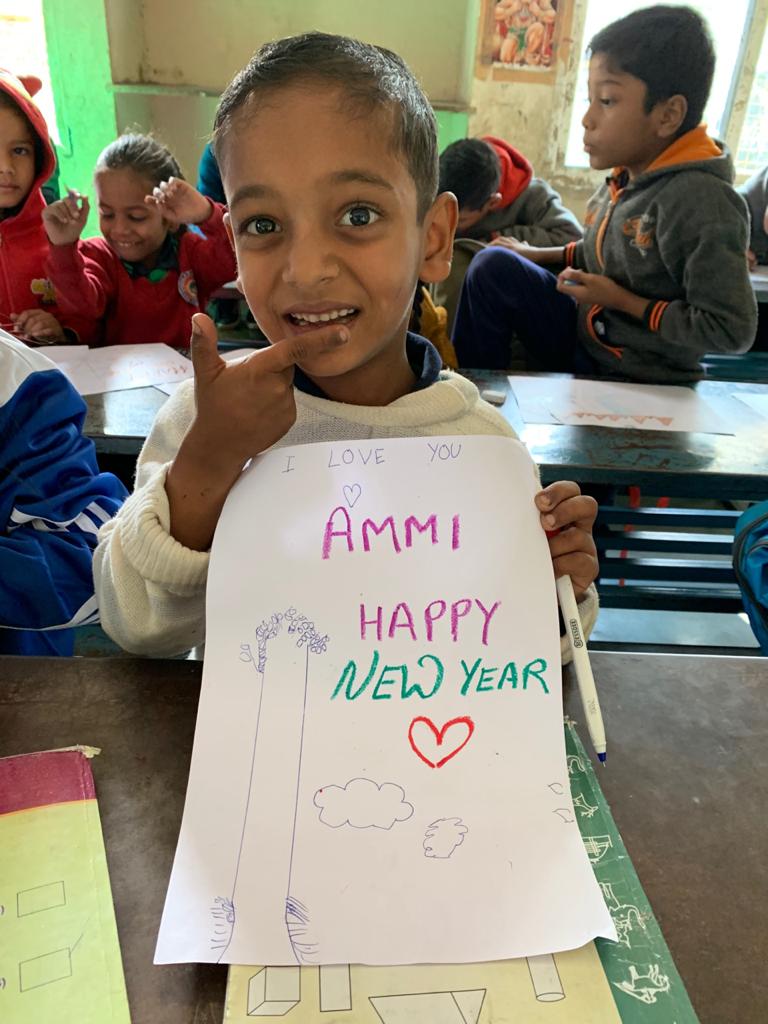 I LOVE YOU
AMMI
HAPPY
NEW YEAR